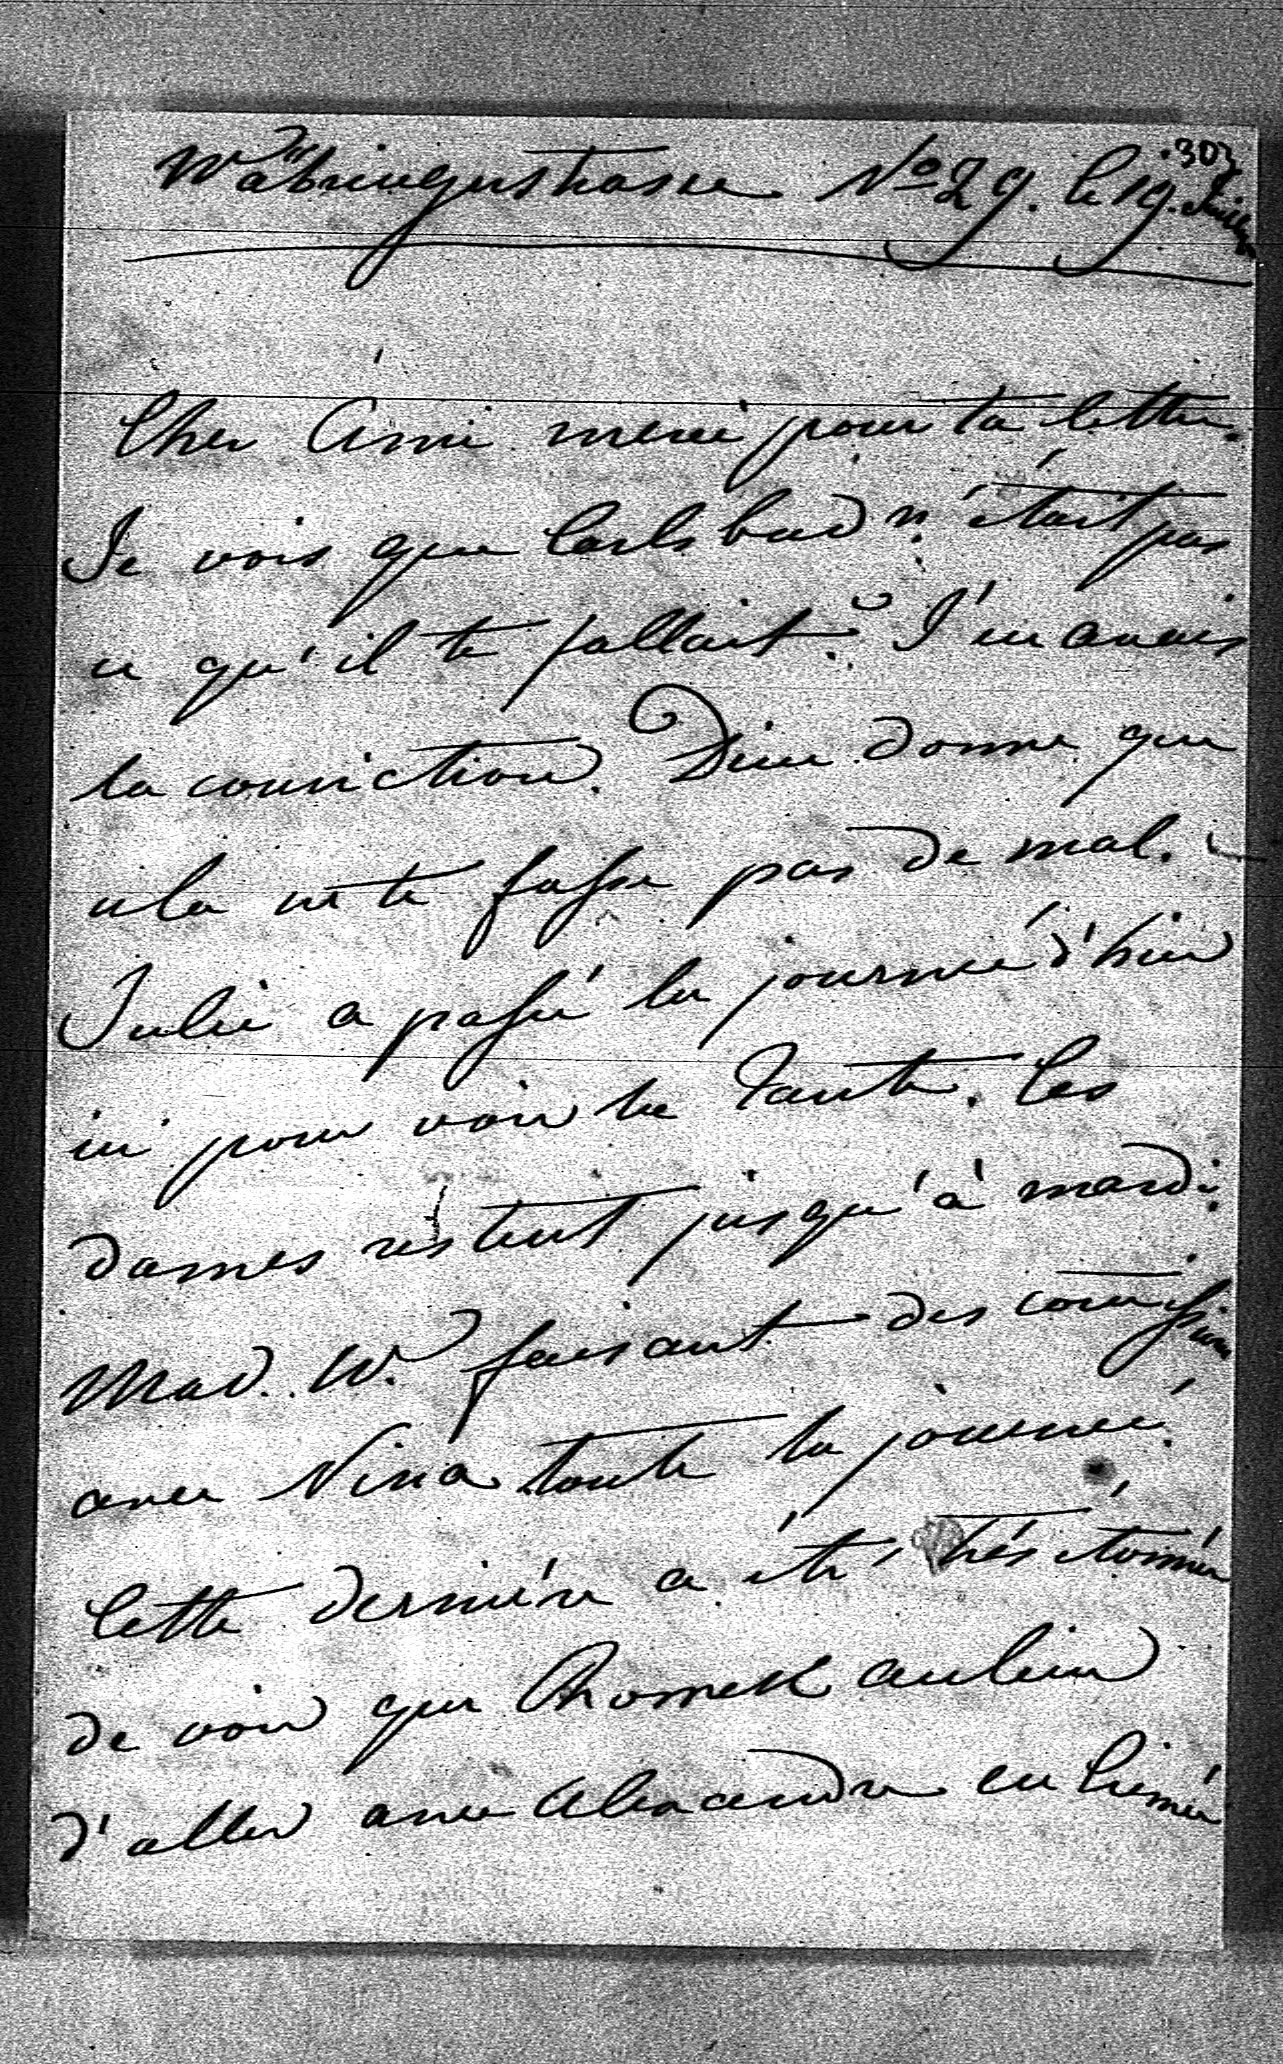 Währingerstrasse No 29. le 19. Juin
303
Cher Ami merci pour ta lettre.
Je vois que Carlsbad n'était pas
ce qu'il te fallait. J'en avais
la conviction. Dieu donne que
cela ne te fasse pas de mal. –
Julie a passé la journée d'hier
ici pour voir la Tante. Ces
dames restent jusqu'à mardi.
Mad. W. faisant des comissions
avec Nina toute la journée.
Cette dernière a été très étonnée
de voir que Chomek au lieu
d'aller avec Alexandre en Crimée